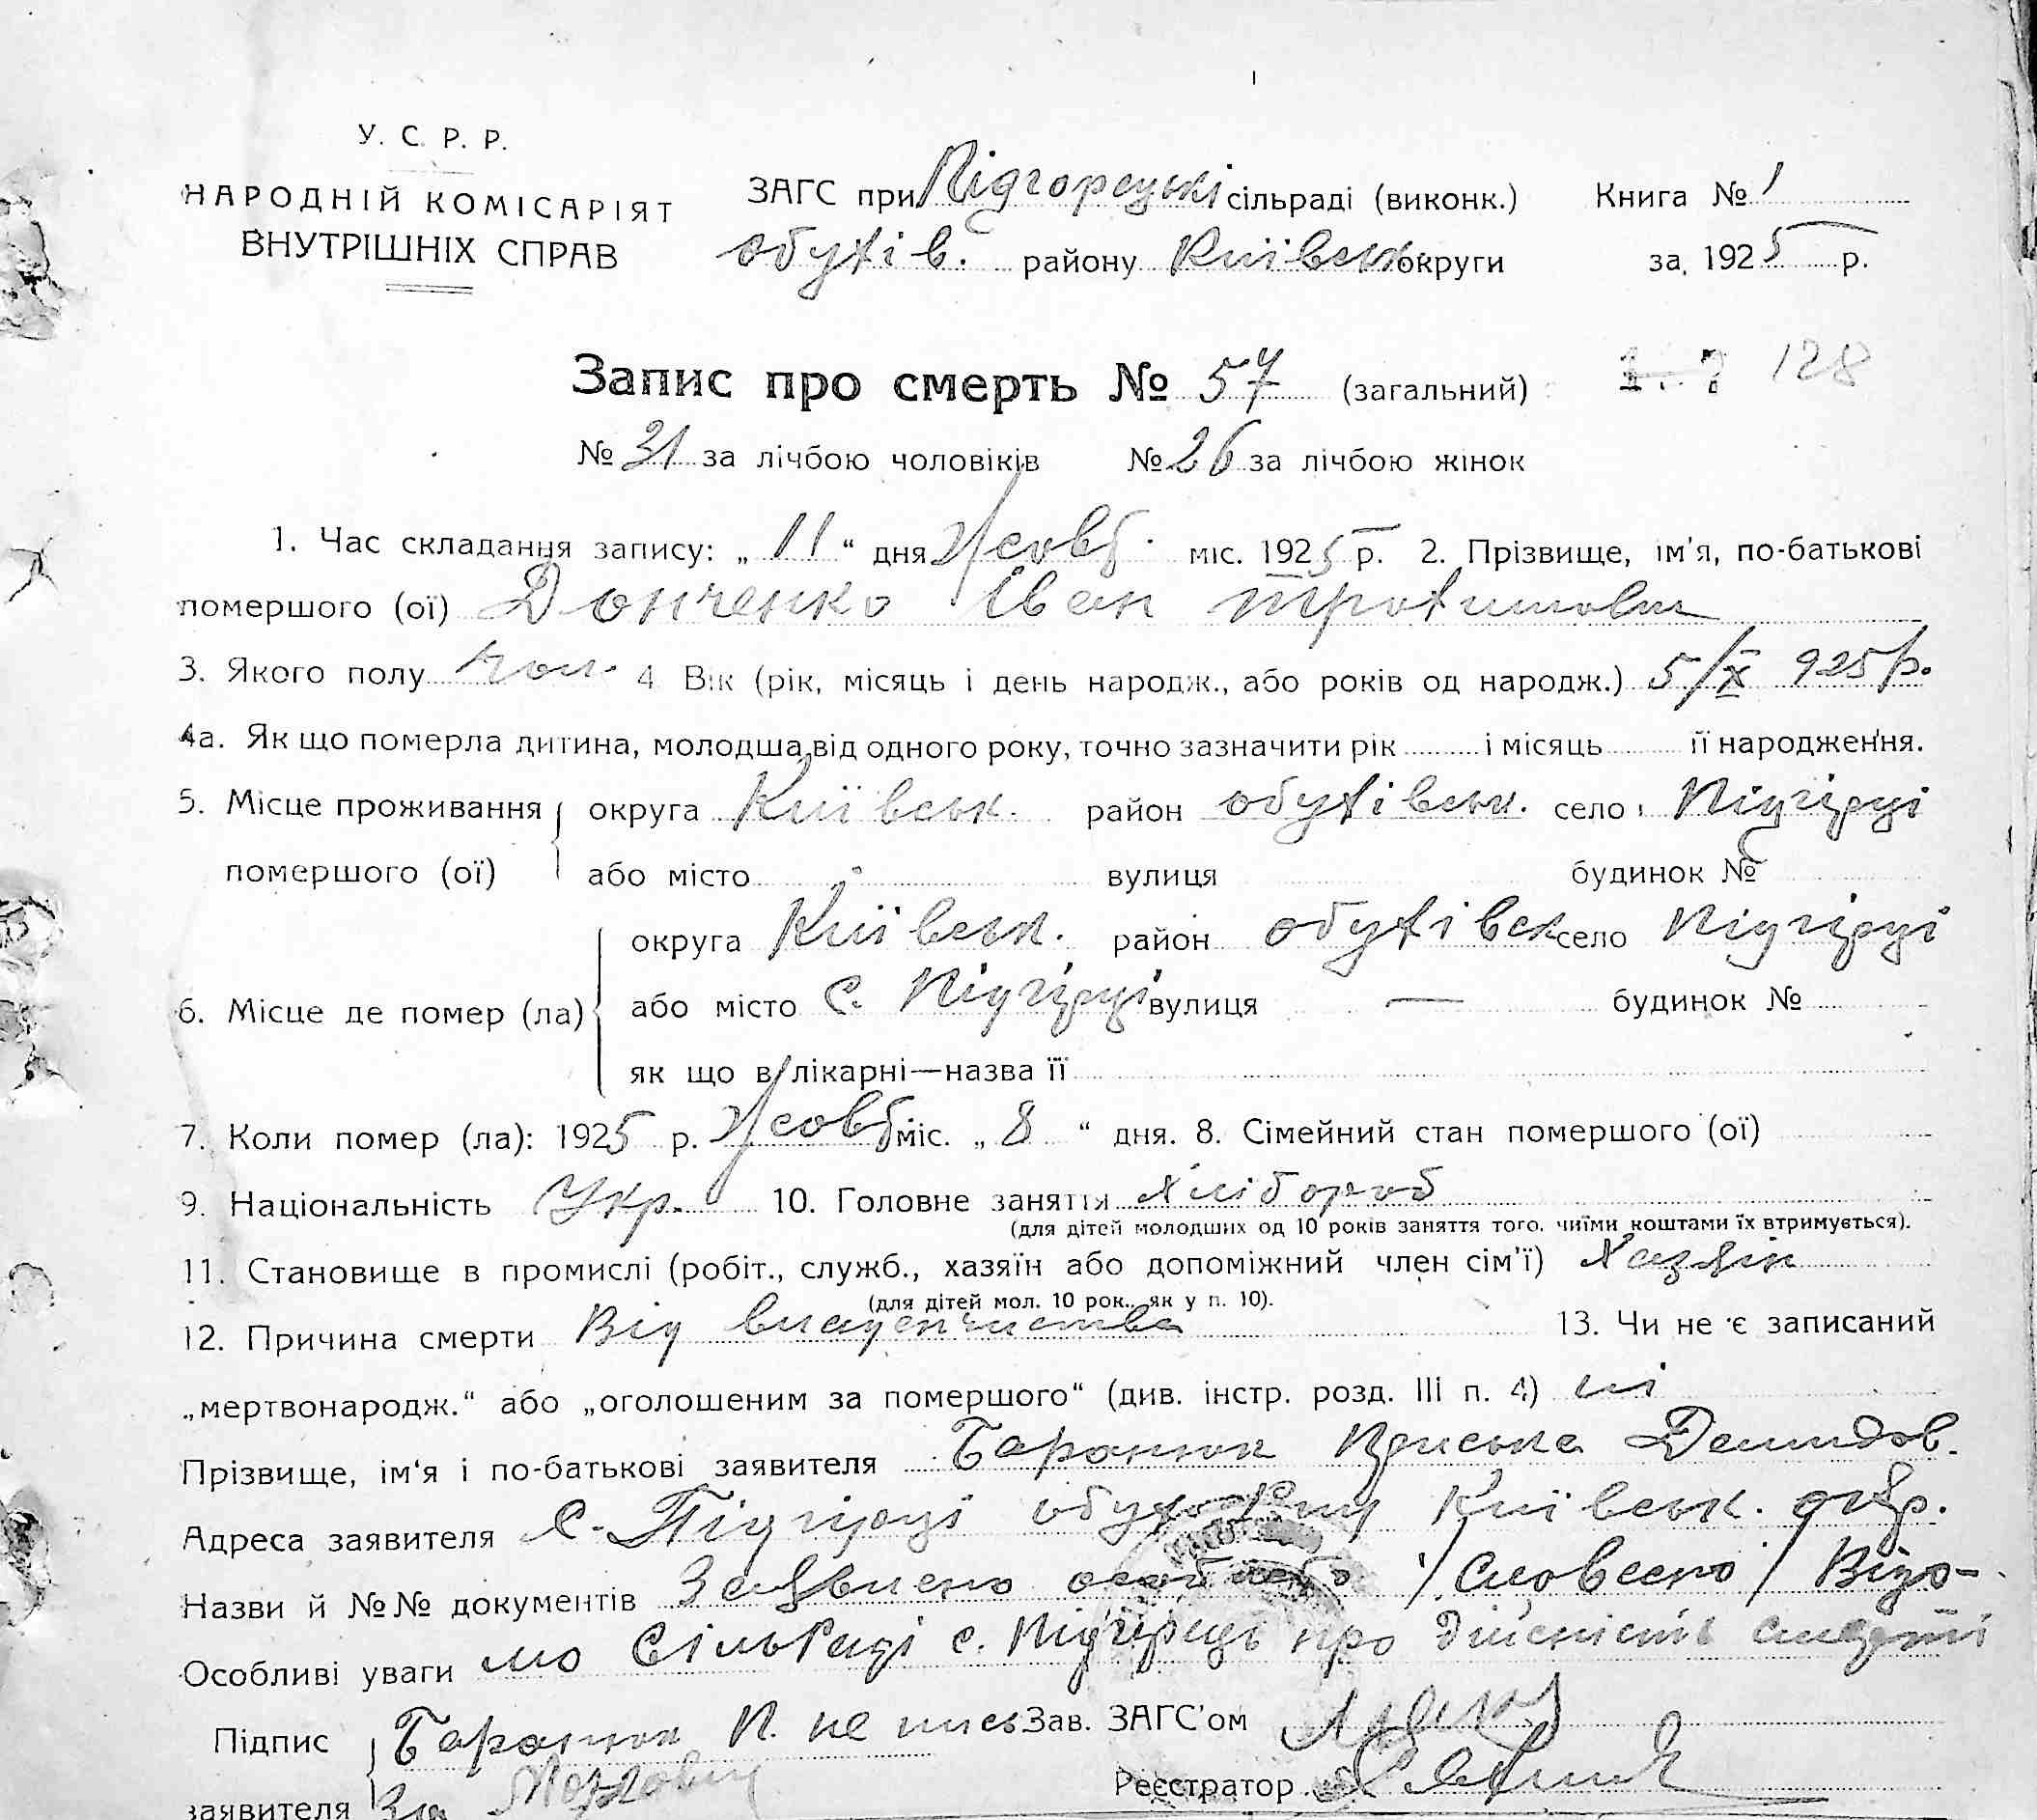 У. С. Р. Р.
НАРОДНІЙ КОМІСАРІЯТ
ВНУТРІШНІХ СПРАВ
ЗАГС при Підгорецькі сільраді (виконк.) Книга № 1
обухів. району Київськ. округи за 1925 р.
Запис про смерть № 57 (загальний) 128
№ 31 за лічбою чоловіків № 26 за лічбою жінок
1. Час складання запису: „11“ дня Жовт. міс. 1925 р. 2. Прізвище, ім'я, по-батькові
помершого (ої) Донченко Іван трохимович
3. Якого полу чол. 4 Вік (рік, місяць і день народж., або років од народж.) 5/X 925 р.
4а. Як що померла дитина, молодша від одного року, точно зазначити рік і місяць її народження.
5. Місце проживання округа Київськ. район обухівськ. село Підгірці
помершого (ої) або місто вулиця будинок №
округа Київськ. район обухівськ село Підгірці
6. Місце де помер (ла) або місто с. Підгірці вулиця — будинок №
як що в лікарні—назва її
7. Коли помер (ла): 1925 р. Жовт міс. „8“ дня. 8. Сімейний стан помершого (ої)
9. Національність Укр. 10. Головне заняття Хлібороб
(для дітей молодших од 10 років заняття того, чиїми коштами їх втримується).
11. Становище в промислі (робіт., служб., хазяїн або допоміжний член сім'ї) Хазяін
(для дітей мол. 10 рок., як у п. 10).
12. Причина смерти Від 13. Чи не є записаний
„мертвонародж.“ або „оголошеним за помершого“ (див. інстр. розд. III п. 4) ні
Прізвище, ім'я і по-батькові заявителя Баранюк Пріська Демидов.
Адреса заявителя с. Підгірці Київськ. окр.
Назви й №№ документів Заявлено особисто /словесно/ Відо-
Особливі уваги мо Сільраді с. Підгірець про дійсність смерті
Підпис Баранюк П. не письм Зав. ЗАГС'ом
заявителя За Реєстратор